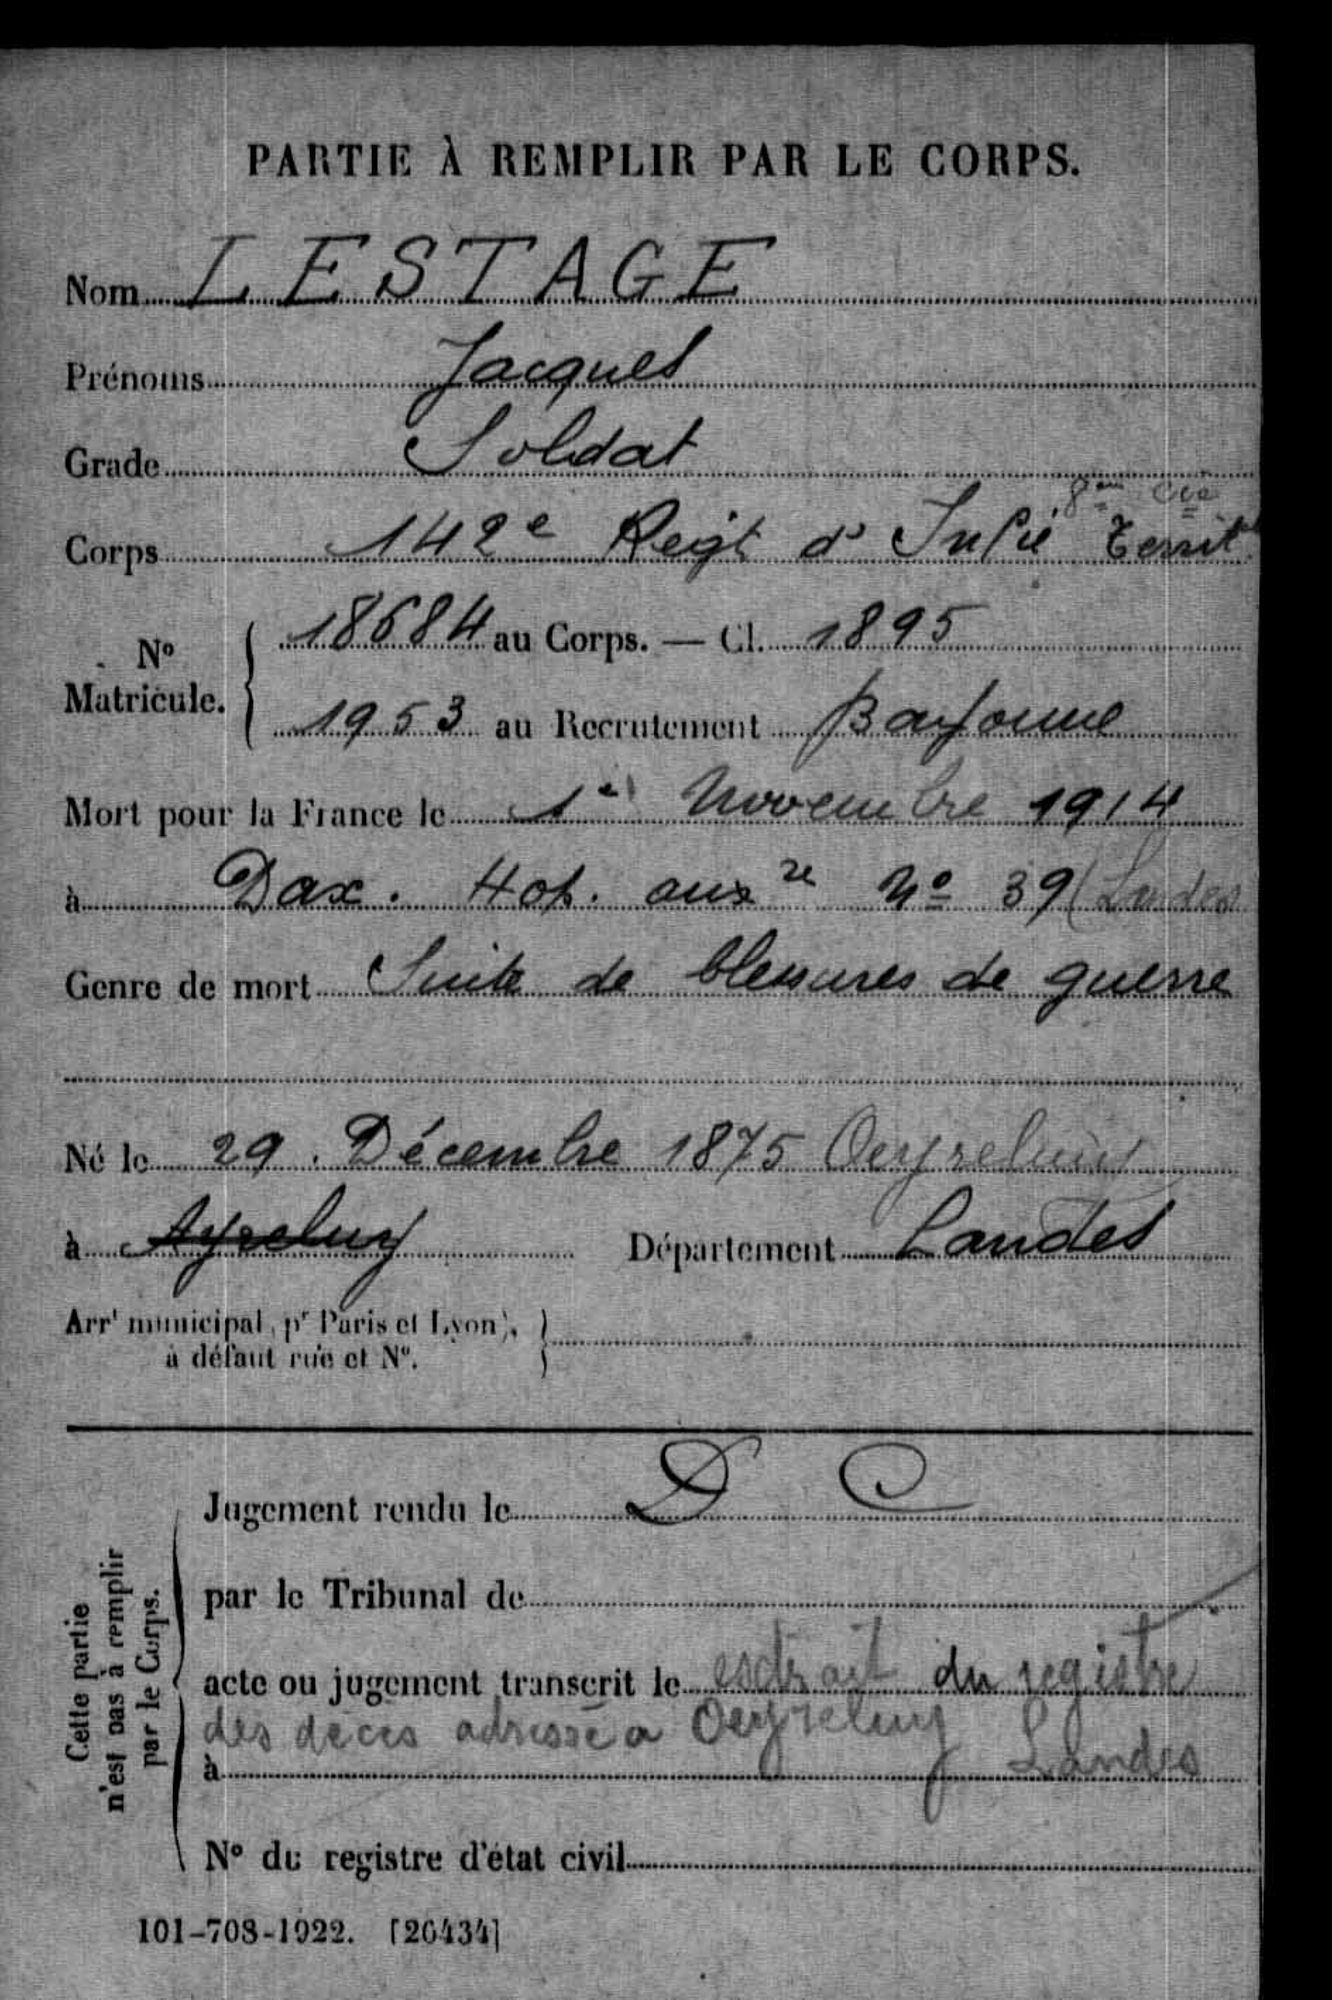 PARTIE À REMPLIR PAR LE CORPS.
Nom LESTAGE
Prénoms Jacques
Grade Soldat
8em Cie
Corps 142e Regt d' Infie Territ
No Matricule. 18684 au Corps. — Cl. 1895
1953 au Recrutement Bayonne
Mort pour la France le 1er Novembre 1914
à Dax. Hop. auxre No 39 (Landes
Genre de mort Suite de blessures de guerre
Né le 29 Décembre 1875 Oeyreluy
à Ayreluy Département Landes
Arrt municipal (pr Paris et Lyon),
à défaut rue et No.
Cette partie
n'est pas à remplir
par le Corps.
Jugement rendu le D C
par le Tribunal de
acte ou jugement transcrit le extrait du registre
des décès adressé a Oeyreluy
à Landes
No du registre d'état civil
101-708-1922. [26434]